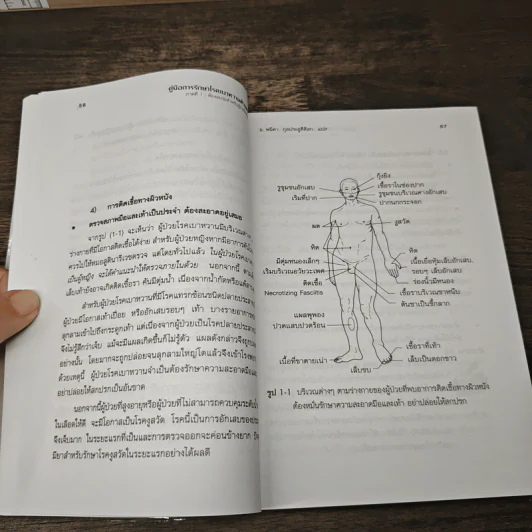 ๕๖
คู่มือการรักษาโรคเบาหวาน
4) การติดเชื้อทางผิวหนัง
ตรวจสภาพมือและเท้าเป็นประจำ ต้องสะอาดอยู่เสมอ
จากรูป (1-1) จะเห็นว่า ผู้ป่วยโรคเบาหวานมีบริเวณต่าง
ร่างกายที่มีโอกาสติดเชื้อได้ง่าย สำหรับผู้ป่วยหญิงหากมีอาการคัน
ควรไปให้หมอสูตินารีเวชตรวจ แต่โดยทั่วไปแล้ว ในผู้ป่วยโรคเบา
เป็นผู้หญิง จะได้คำแนะนำให้ตรวจภายในด้วย นอกจากนี้ ตาม
เล็บเท้ายังอาจเกิดติดเชื้อรา คันมีตุ่มน้ำ เนื่องจากน้ำกัดหรือแพ้
สำหรับผู้ป่วยโรคเบาหวานที่มีโรคแทรกซ้อนชนิดปลายประสาท
ผู้ป่วยมีโอกาสเท้าเปื่อย หรืออักเสบรอบๆ เท้า บางรายอาการ
ลุกลามเข้าไปถึงกระดูกเท้า แต่เนื่องจากผู้ป่วยเป็นโรคปลายประสาท
จึงไม่รู้สึกว่าเจ็บ แม้จะมีแผลเกิดขึ้นก็ไม่รู้ตัว แผลดังกล่าวจึงถูก
อย่างนั้น โดยมากจะถูกปล่อยจนลุกลามใหญ่โตแล้วจึงเข้าโรง
ด้วยเหตุนี้ ผู้ป่วยโรคเบาหวานจำเป็นต้องรักษาความสะอาดมือและ
อย่าปล่อยให้สกปรกเป็นอันขาด
นอกจากนี้ผู้ป่วยที่สูงอายุหรือผู้ป่วยที่ไม่สามารถควบคุมระดับน้ำ
ในเลือดให้ดี จะมีโอกาสเป็นโรคงูสวัด โรคนี้เป็นการอักเสบของ
จึงเจ็บมาก ในระยะแรกที่เป็นและการตรวจออกจะค่อนข้างยาก
มียาสำหรับรักษาโรคงูสวัดในระยะแรกอย่างได้ผลดี
แปล
๕๗
กุ้งยิง
รูขุมขนอักเสบ
เชื้อราในช่องปาก
รูขุมขนบริเวณคางอักเสบ
เริมที่ปาก
ปากนกกระจอก
ฝด
งูสวัด
หิด
หิด
มีตุ่มหนองเล็กๆ
เนื้อเยื่อหุ้มเล็บอักเสบ
เริมบริเวณอวัยวะเพศ
รอบๆ เล็บอักเสบ
ร่องนิ้วมีหนอง
ติดเชื้อ
Necrotizing Fasciitis
เชื้อราบริเวณขาหนีบ
ต้นขาเป็นขี้กลาก
แผลพุพอง
ปวดแสบปวดร้อน
เชื้อราที่เท้า
เนื้อที่ขาตายเน่า
เล็บเป็นดอกขาว
เล็บขบ
รูป 1-1 บริเวณต่างๆ ตามร่างกายของผู้ป่วยที่พบอาการติดเชื้อทางผิวหนัง
ต้องหมั่นรักษาความสะอาดมือและเท้า อย่าปล่อยให้สกปรก